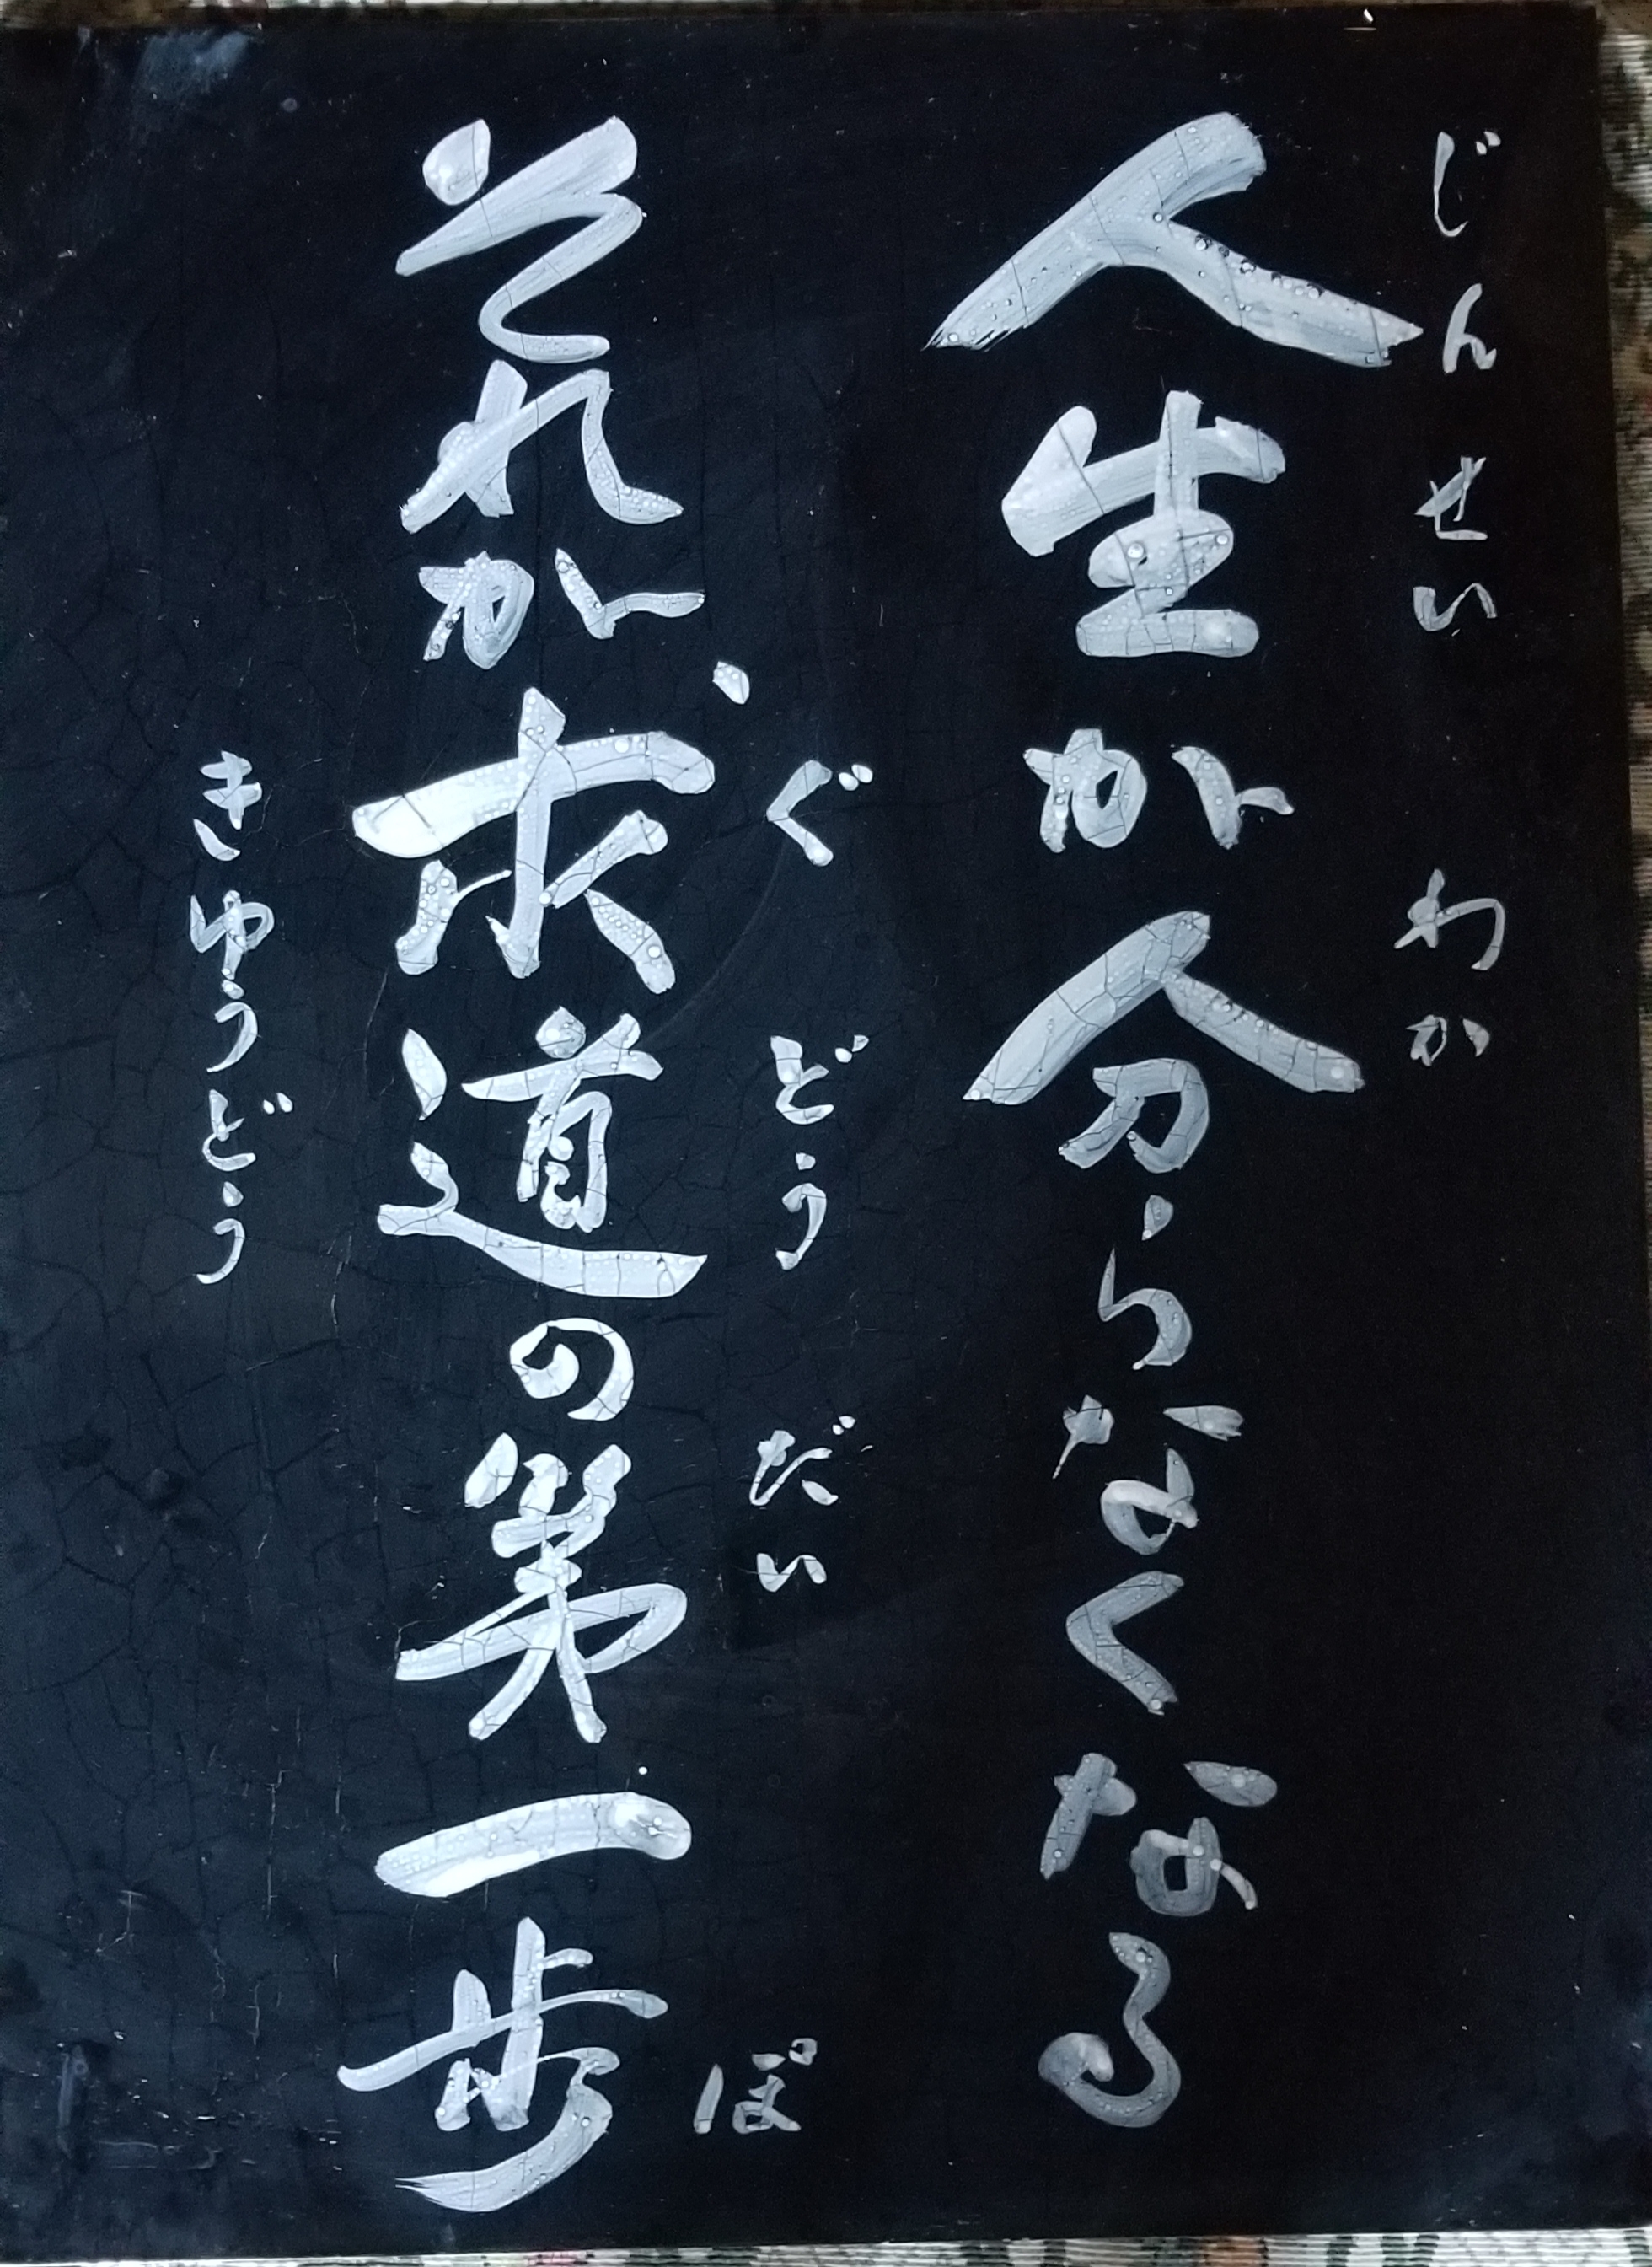 じんせい わか
人生が分らなくなる
ぐどう だい ぽ
それが、求道の第一歩
きゆうどう